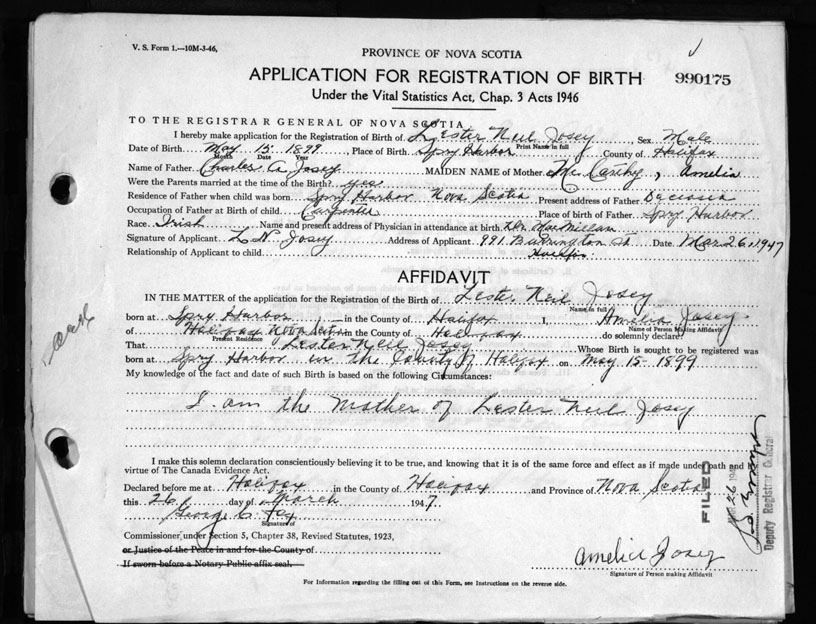 V. S. Form 1.—10M-3-46.
PROVINCE OF NOVA SCOTIA
APPLICATION FOR REGISTRATION OF BIRTH 990175
Under the Vital Statistics Act, Chap. 3 Acts 1946
TO THE REGISTRAR GENERAL OF NOVA SCOTIA
I hereby make application for the Registration of Birth of Lester Neil Josey, Sex Male
Print Name in full
Date of Birth May 15 1899, Place of Birth Spry Harbor County of Halifax
Month Date Year
Name of Father Charles A Josey MAIDEN NAME of Mother Mc Carthy, Amelia
Were the Parents married at the time of the Birth? yes
Residence of Father when child was born Spry Harbor Nova Scotia Present address of Father Deceased
Occupation of Father at Birth of child Carpenter Place of birth of Father Spry Harbor
Race Irish Name and present address of Physician in attendance at birth Dr. MacMillan
Signature of Applicant L N Josey Address of Applicant 991 Barrington St Date Mar 26, 1947
Relationship of Applicant to child Halifax
AFFIDAVIT
IN THE MATTER of the application for the Registration of the Birth of Lester Neil Josey
Name in full
born at Spry Harbor in the County of Halifax I, Amelia Josey
Name of Person Making Affidavit
of Halifax Nova Scotia in the County of Halifax do solemnly declare:
Present Residence
That Lester Neil Josey Whose Birth is sought to be registered was
born at Spry Harbor in the County of Halifax on May 15 1899
My knowledge of the fact and date of such Birth is based on the following Circumstances:
I am the Mother of Lester Neil Josey
I make this solemn declaration conscientiously believing it to be true, and knowing that it is of the same force and effect as if made under oath and in
virtue of The Canada Evidence Act.
Declared before me at Halifax in the County of Halifax and Province of Nova Scotia
this 26 day of March 1947
George C. Fox
Signature of
Commissioner under Section 5, Chapter 38, Revised Statutes, 1923,
or Justice of the Peace in and for the County of
If sworn before a Notary Public affix seal.
Amelia Josey
Signature of Person making Affidavit
For Information regarding the filling out of this Form, see Instructions on the reverse side.
FILED
Deputy Registrar General